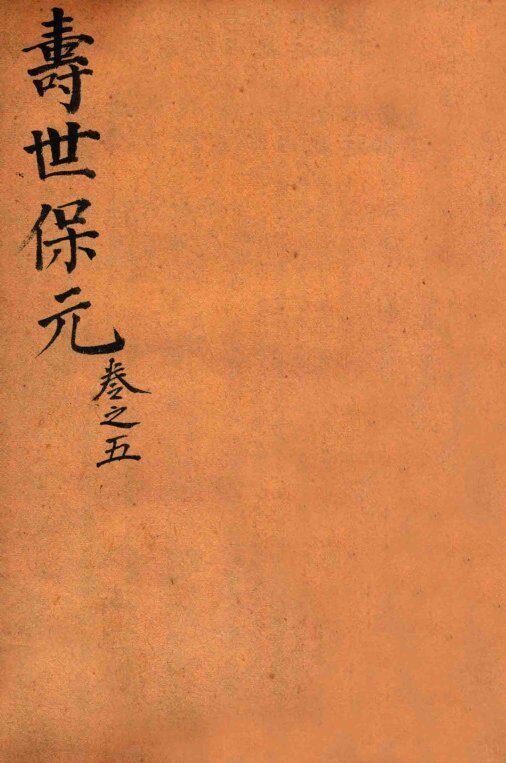 壽世保元
卷之五